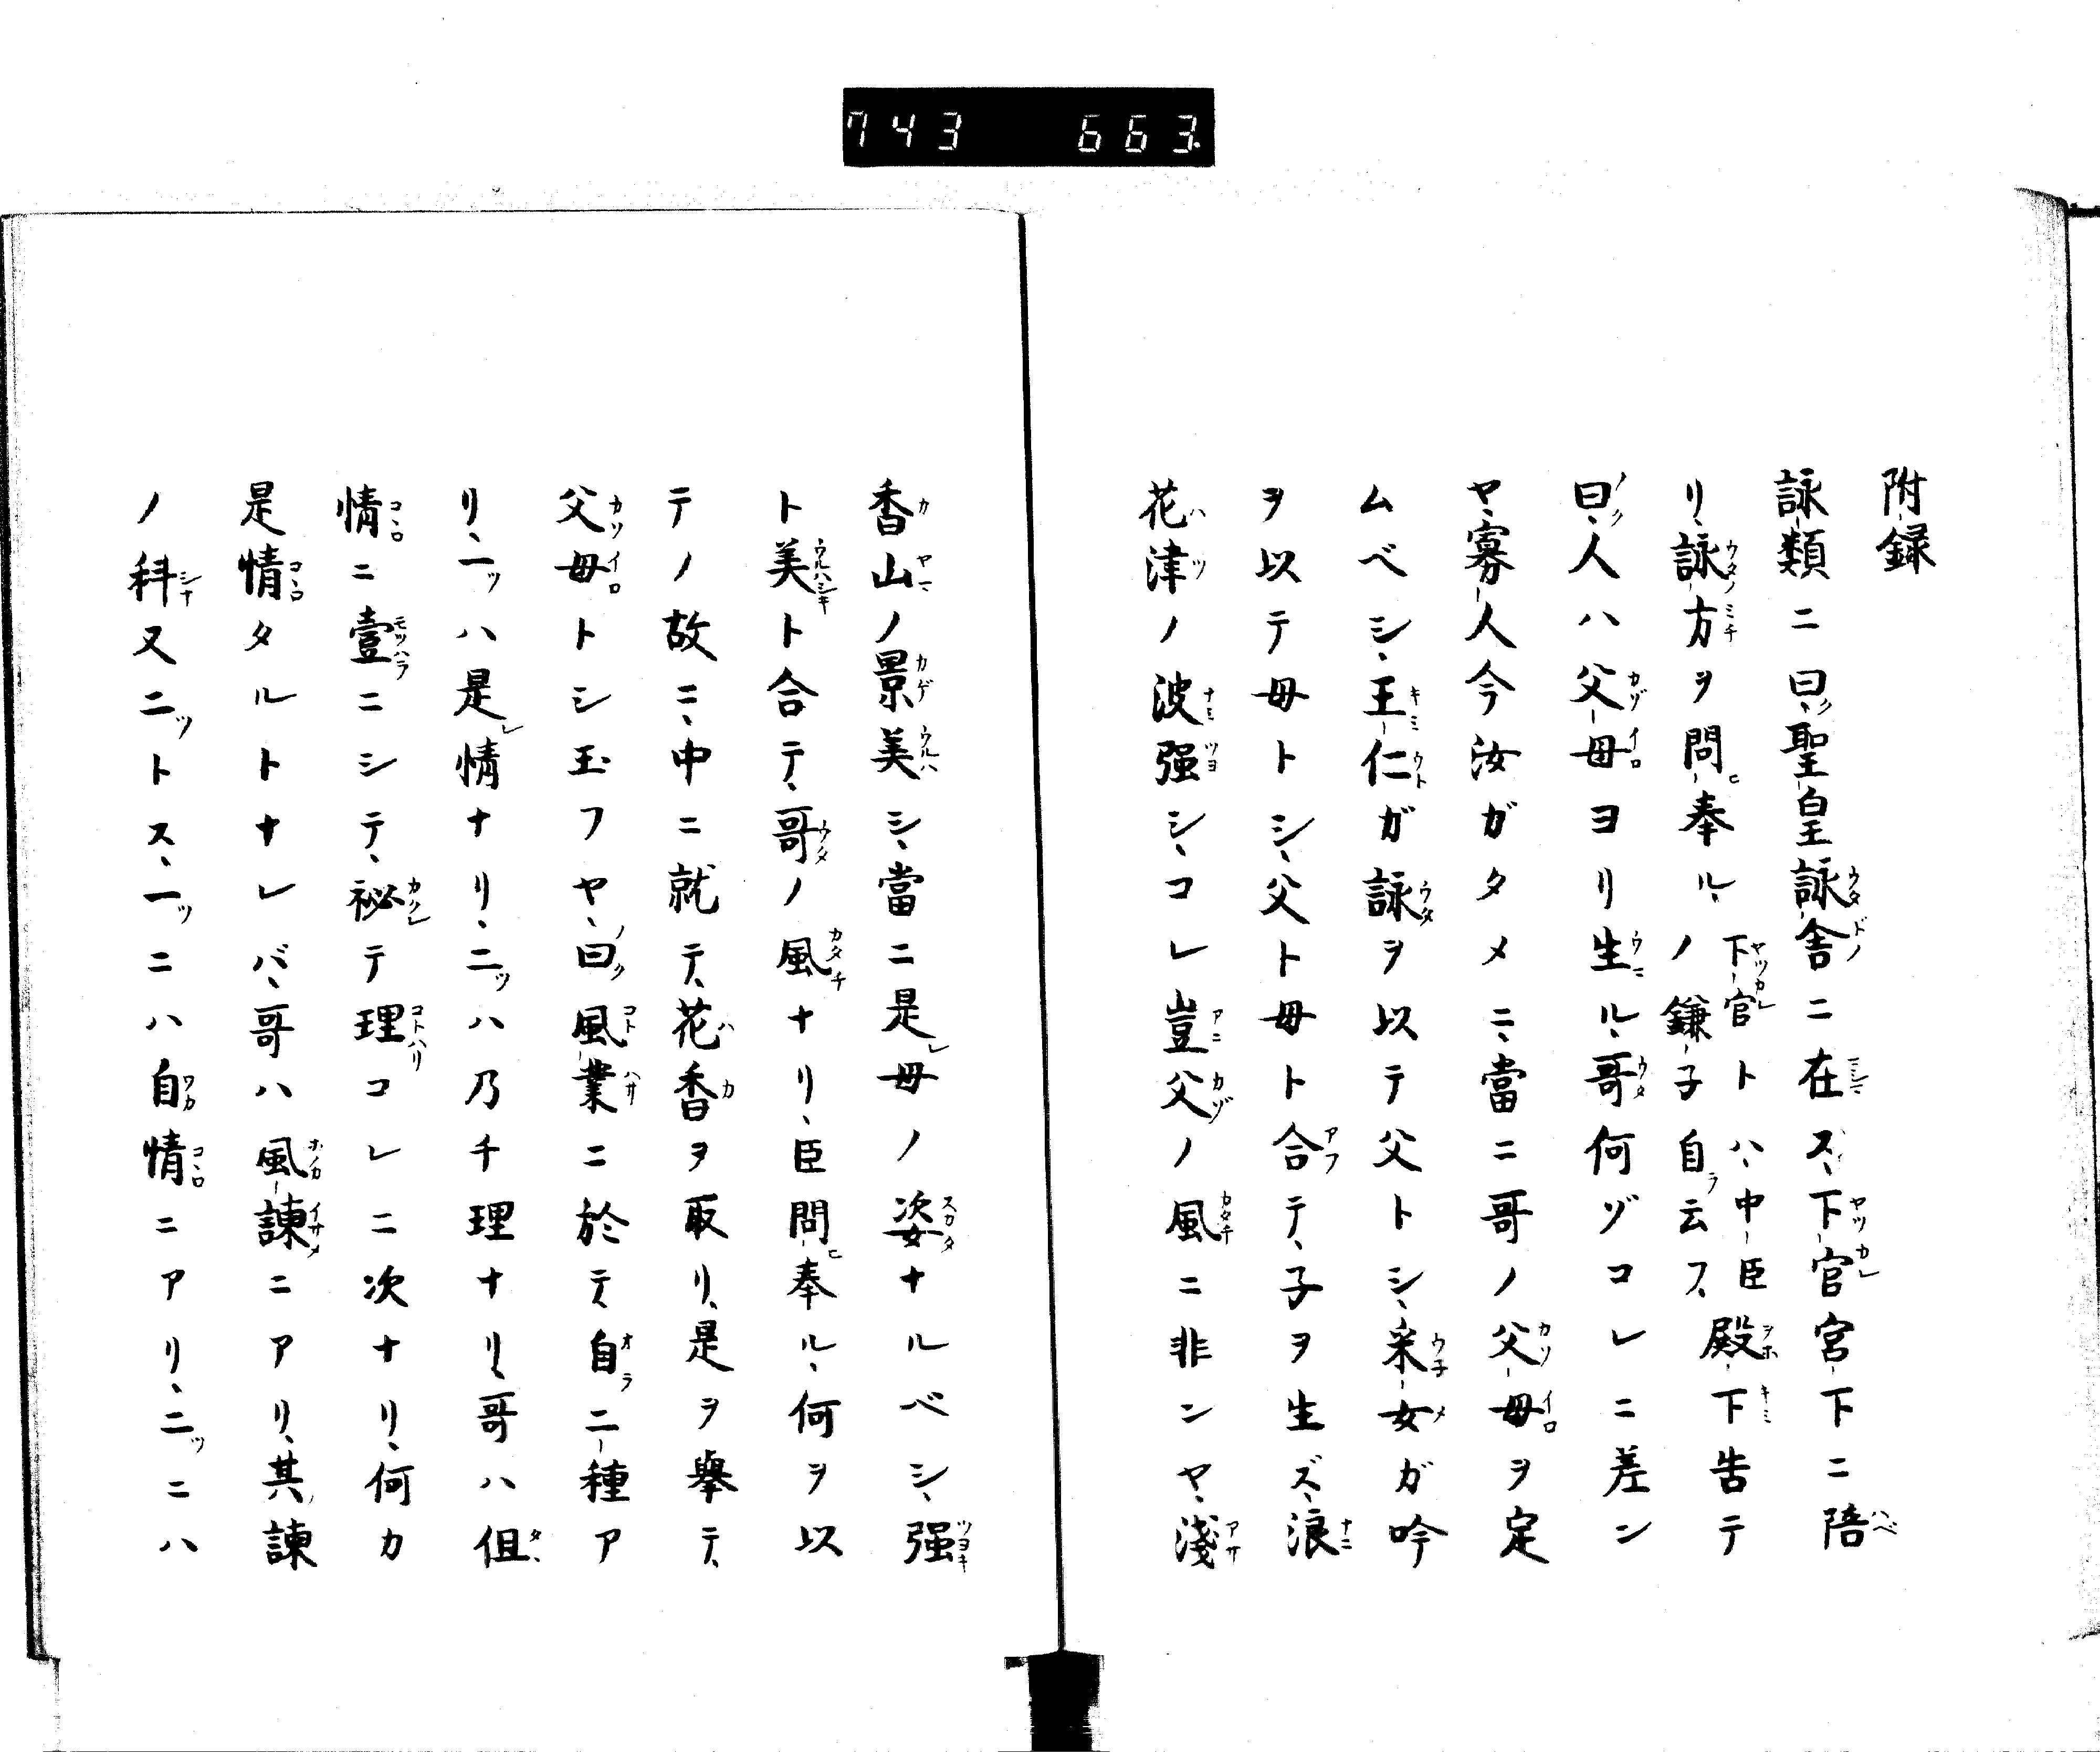 743 663
附録
詠類ニ曰、聖皇詠舎ニ在ス、下官宮下ニ陪
リ、詠方ヲ問奉ル、下官トハ、中臣ノ鎌子自云フ、殿下告テ
曰、人ハ父母ヨリ生ル、哥何ゾコレニ差ン
ヤ、寡人今汝ガタメニ、當ニ哥ノ父母ヲ定
ムベシ、王仁ガ詠ヲ以テ父トシ、采女ガ吟
ヲ以テ母トシ、父ト母ト合テ、子ヲ生ズ、浪
花津ノ波强シ、コレ豈父ノ風ニ非ンヤ、淺
香山ノ景美シ、當ニ是母ノ姿ナルベシ、强
ト美ト合テ、哥ノ風ナリ、臣問奉ル、何ヲ以
テノ故ニ、中ニ就テ、花香ヲ取リ、是ヲ擧テ、
父母トシ玉フヤ、曰、風業ニ於テ、自二種ア
リ、一ツハ是情ナリ、二ツハ乃チ理ナリ、哥ハ但
情ニ壹ニシテ、祕テ理コレニ次ナリ、何カ
是情タルトナレバ、哥ハ風諫ニアリ、其諫
ノ科又二ツトス、一ツニハ自情ニアリ、二ツニハ